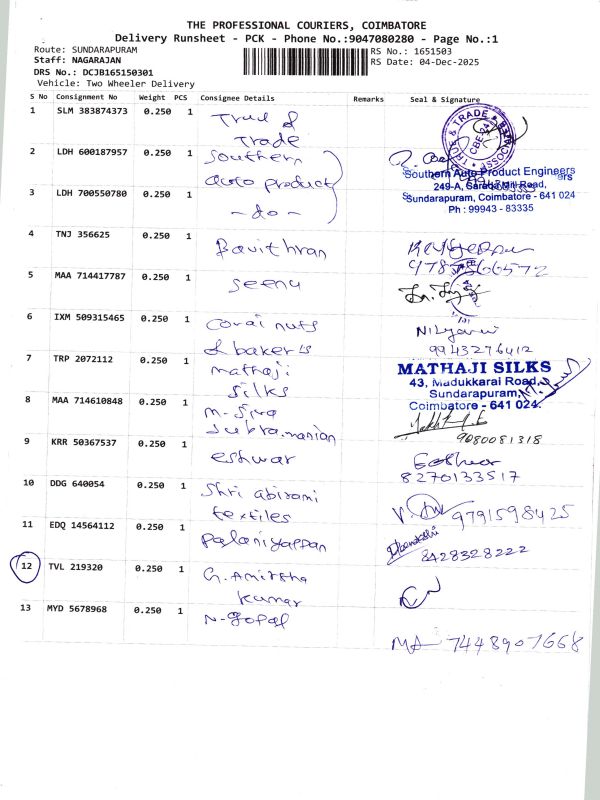 THE PROFESSIONAL COURIERS, COIMBATORE
Delivery Runsheet - PCK - Phone No.:9047080280 - Page No.:1
Route: SUNDARAPURAM
RS No.: 1651503
Staff: NAGARAJAN
RS Date: 04-Dec-2025
DRS No.: DCJB165150301
Vehicle: Two Wheeler Delivery
S No Consignment No Weight PCS Consignee Details Remarks Seal & Signature
1 SLM 383874373 0.250 1 True &
Trade
2 LDH 600187957 0.250 1 Southern
auto product
Southern Auto Product Engineers
249-A, Sarada Mill Road,
Sundarapuram, Coimbatore - 641 024
Ph : 99943 - 83335
3 LDH 700550780 0.250 1 - do -
4 TNJ 356625 0.250 1 Bavithran
5 MAA 714417787 0.250 1 Seenu
6 IXM 509315465 0.250 1 Corai nuts
& bakeris
9943276412
7 TRP 2072112 0.250 1 mathaji
silks
MATHAJI SILKS
43, Madukkarai Road,
Sundarapuram,
Coimbatore - 641 024.
8 MAA 714610848 0.250 1 M-Siva
Subramanian
9080081318
9 KRR 50367537 0.250 1 eshwar
8270133517
10 DDG 640054 0.250 1 Shri abirami
textiles
9791598425
11 EDQ 14564112 0.250 1 Palaniyappan
8428328222
12 TVL 219320 0.250 1 G. Amirtha
Kumar
13 MYD 5678968 0.250 1 N-gopal
7448907668